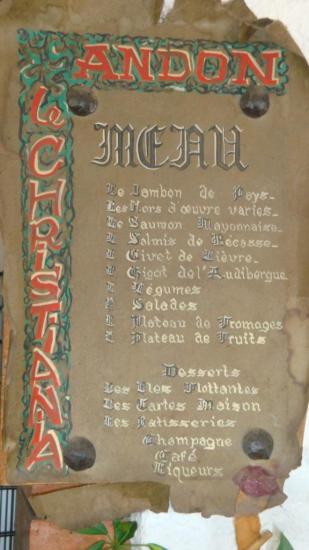 ANDON
Le CHRISTIANIA
MENU
Le Jambon de Pays
Les Hors d'œuvre varies
Le Saumon Mayonnaise
L Salmis de Becasse
L Civet de Lièvre
L Gigot de l'Audibergue
L Légumes
L Salades
L Plateau de Fromages
L Plateau de Fruits
Desserts
Les Iles Flottantes
Des Tartes Maison
Les Patisseries
Champagne
Café
Liqueurs